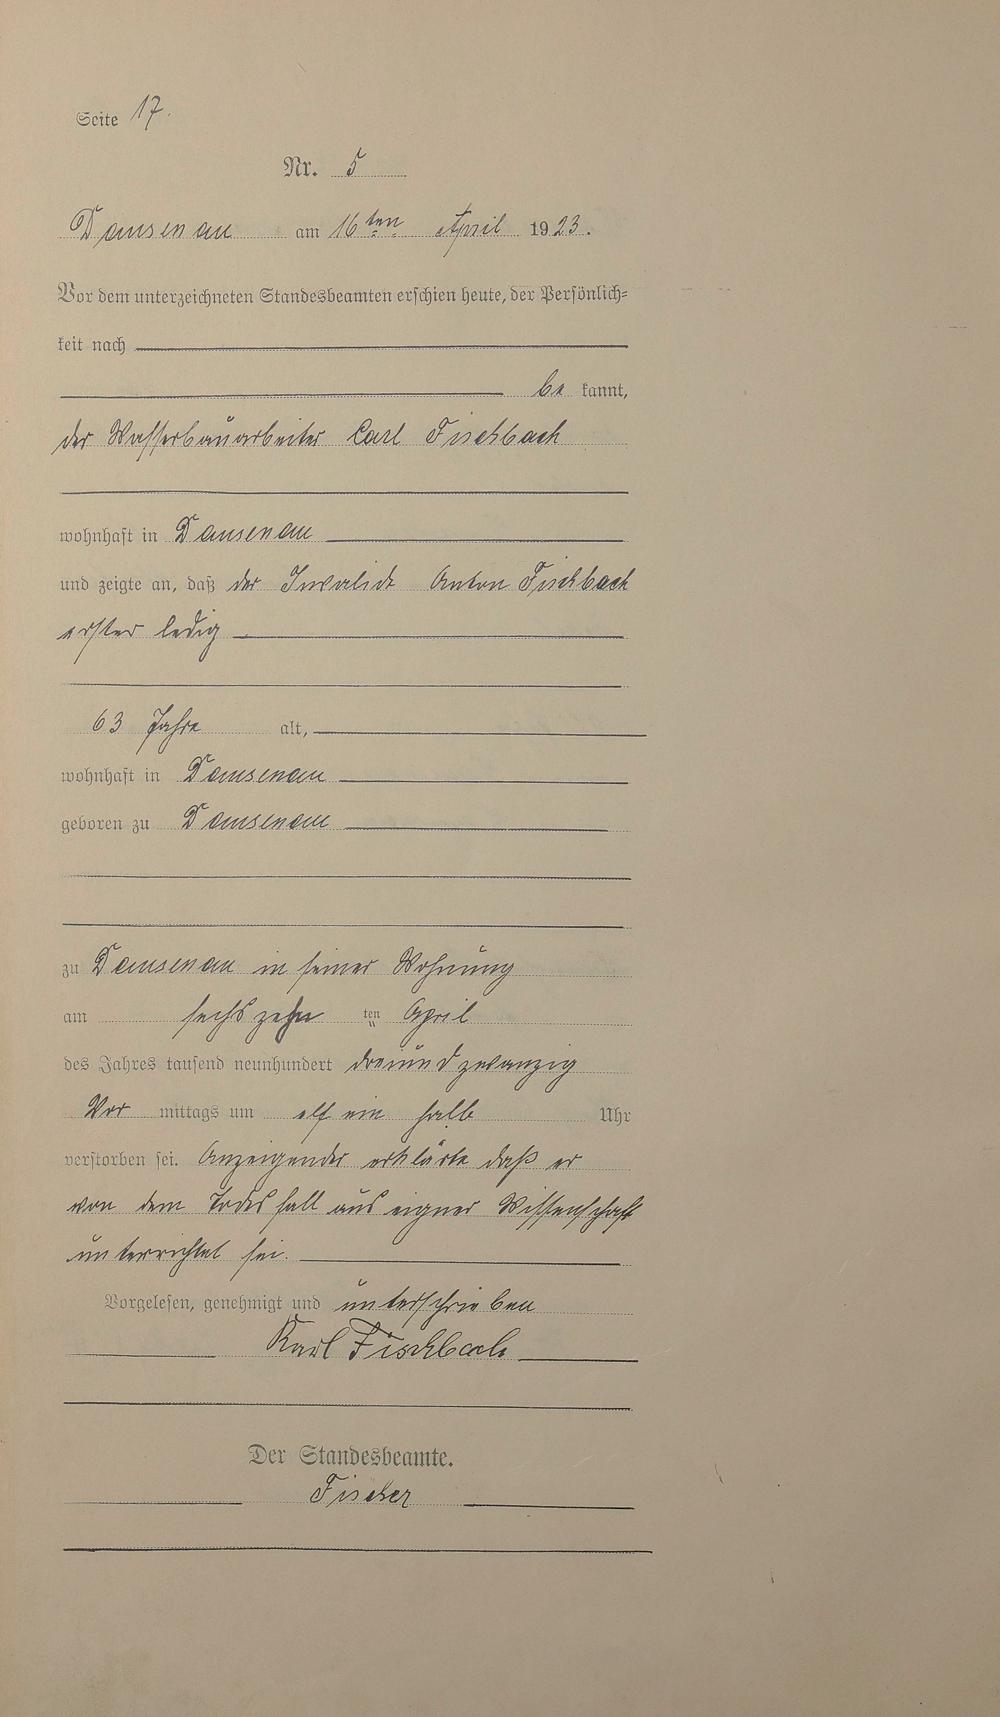 Seite 17.
Nr. 5
Dausenau am 16ten April 1923.
Vor dem unterzeichneten Standesbeamten erschien heute, der Persönlich=
keit nach
be kannt,
der Wasserbauarbeiter Carl Fischbach
wohnhaft in Dausenau
und zeigte an, daß der Invalide Anton Fischbach
erster ledig
63 Jahre alt,
wohnhaft in Dausenau
geboren zu Dausenau
zu Dausenau in seiner Wohnung
am sechszehn ten April
des Jahres tausend neunhundert dreiundzwanzig
Vor mittags um elf ein halb Uhr
verstorben sei. Anzeigender erklärte daß er
von dem Todesfall aus eigner Wissenschaft
unterrichtet sei.
Vorgelesen, genehmigt und unterschrieben
Karl Fischbach
Der Standesbeamte.
Fischer